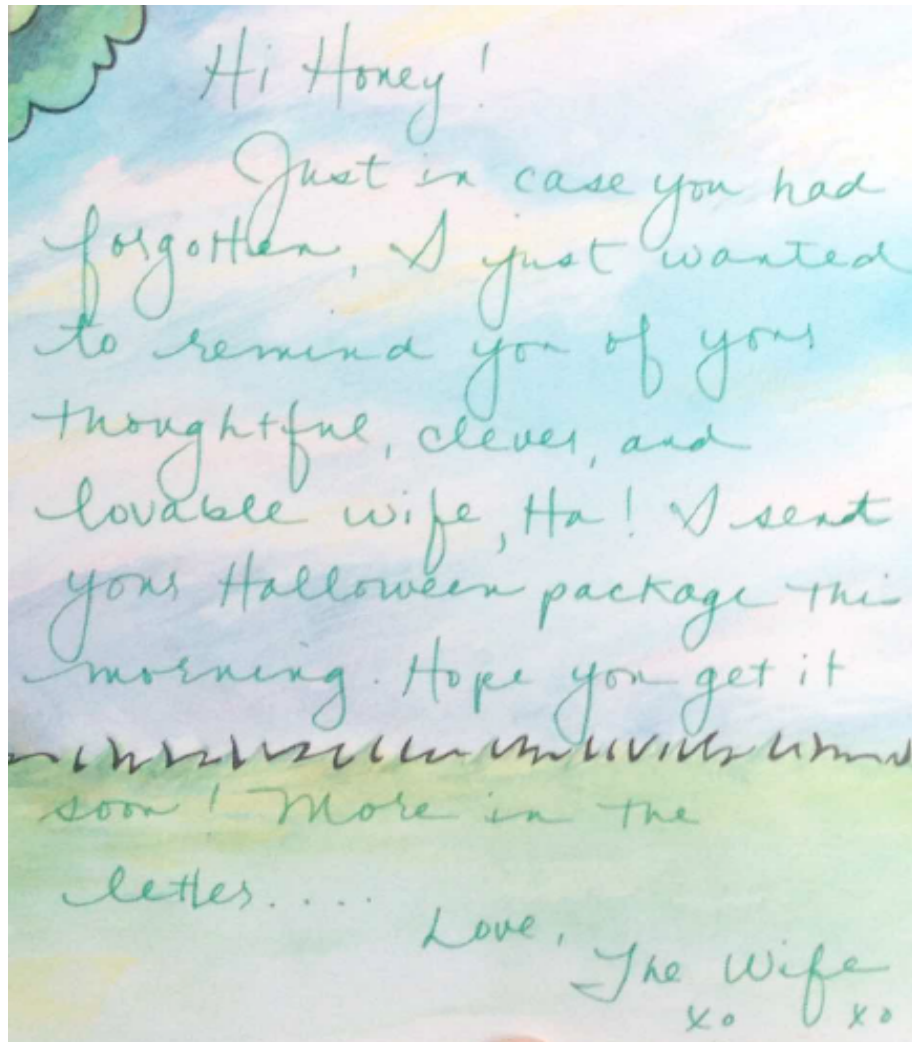 Hi Honey!
Just in case you had
forgotten, I just wanted
to remind you of your
thoughtful, clever, and
lovable wife, Ha! I sent
your Halloween package this
morning. Hope you get it
soon! More in the
letter....
Love,
The Wife
xo xo